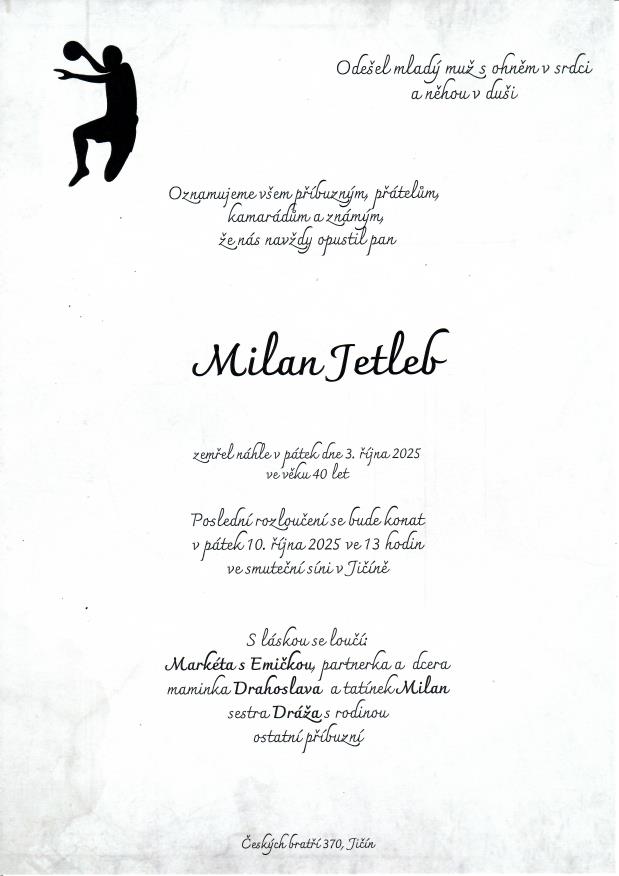 Odešel mladý muž s ohněm v srdci
a něhou v duši
Oznamujeme všem příbuzným, přátelům,
kamarádům a známým,
že nás navždy opustil pan
Milan Jetleb
zemřel náhle v pátek dne 3. října 2025
ve věku 40 let
Poslední rozloučení se bude konat
v pátek 10. října 2025 ve 13 hodin
ve smuteční síni v Jičíně
S láskou se loučí:
Markéta s Emičkou, partnerka a dcera
maminka Drahoslava a tatínek Milan
sestra Dráža s rodinou
ostatní příbuzní
Českých bratří 370, Jičín